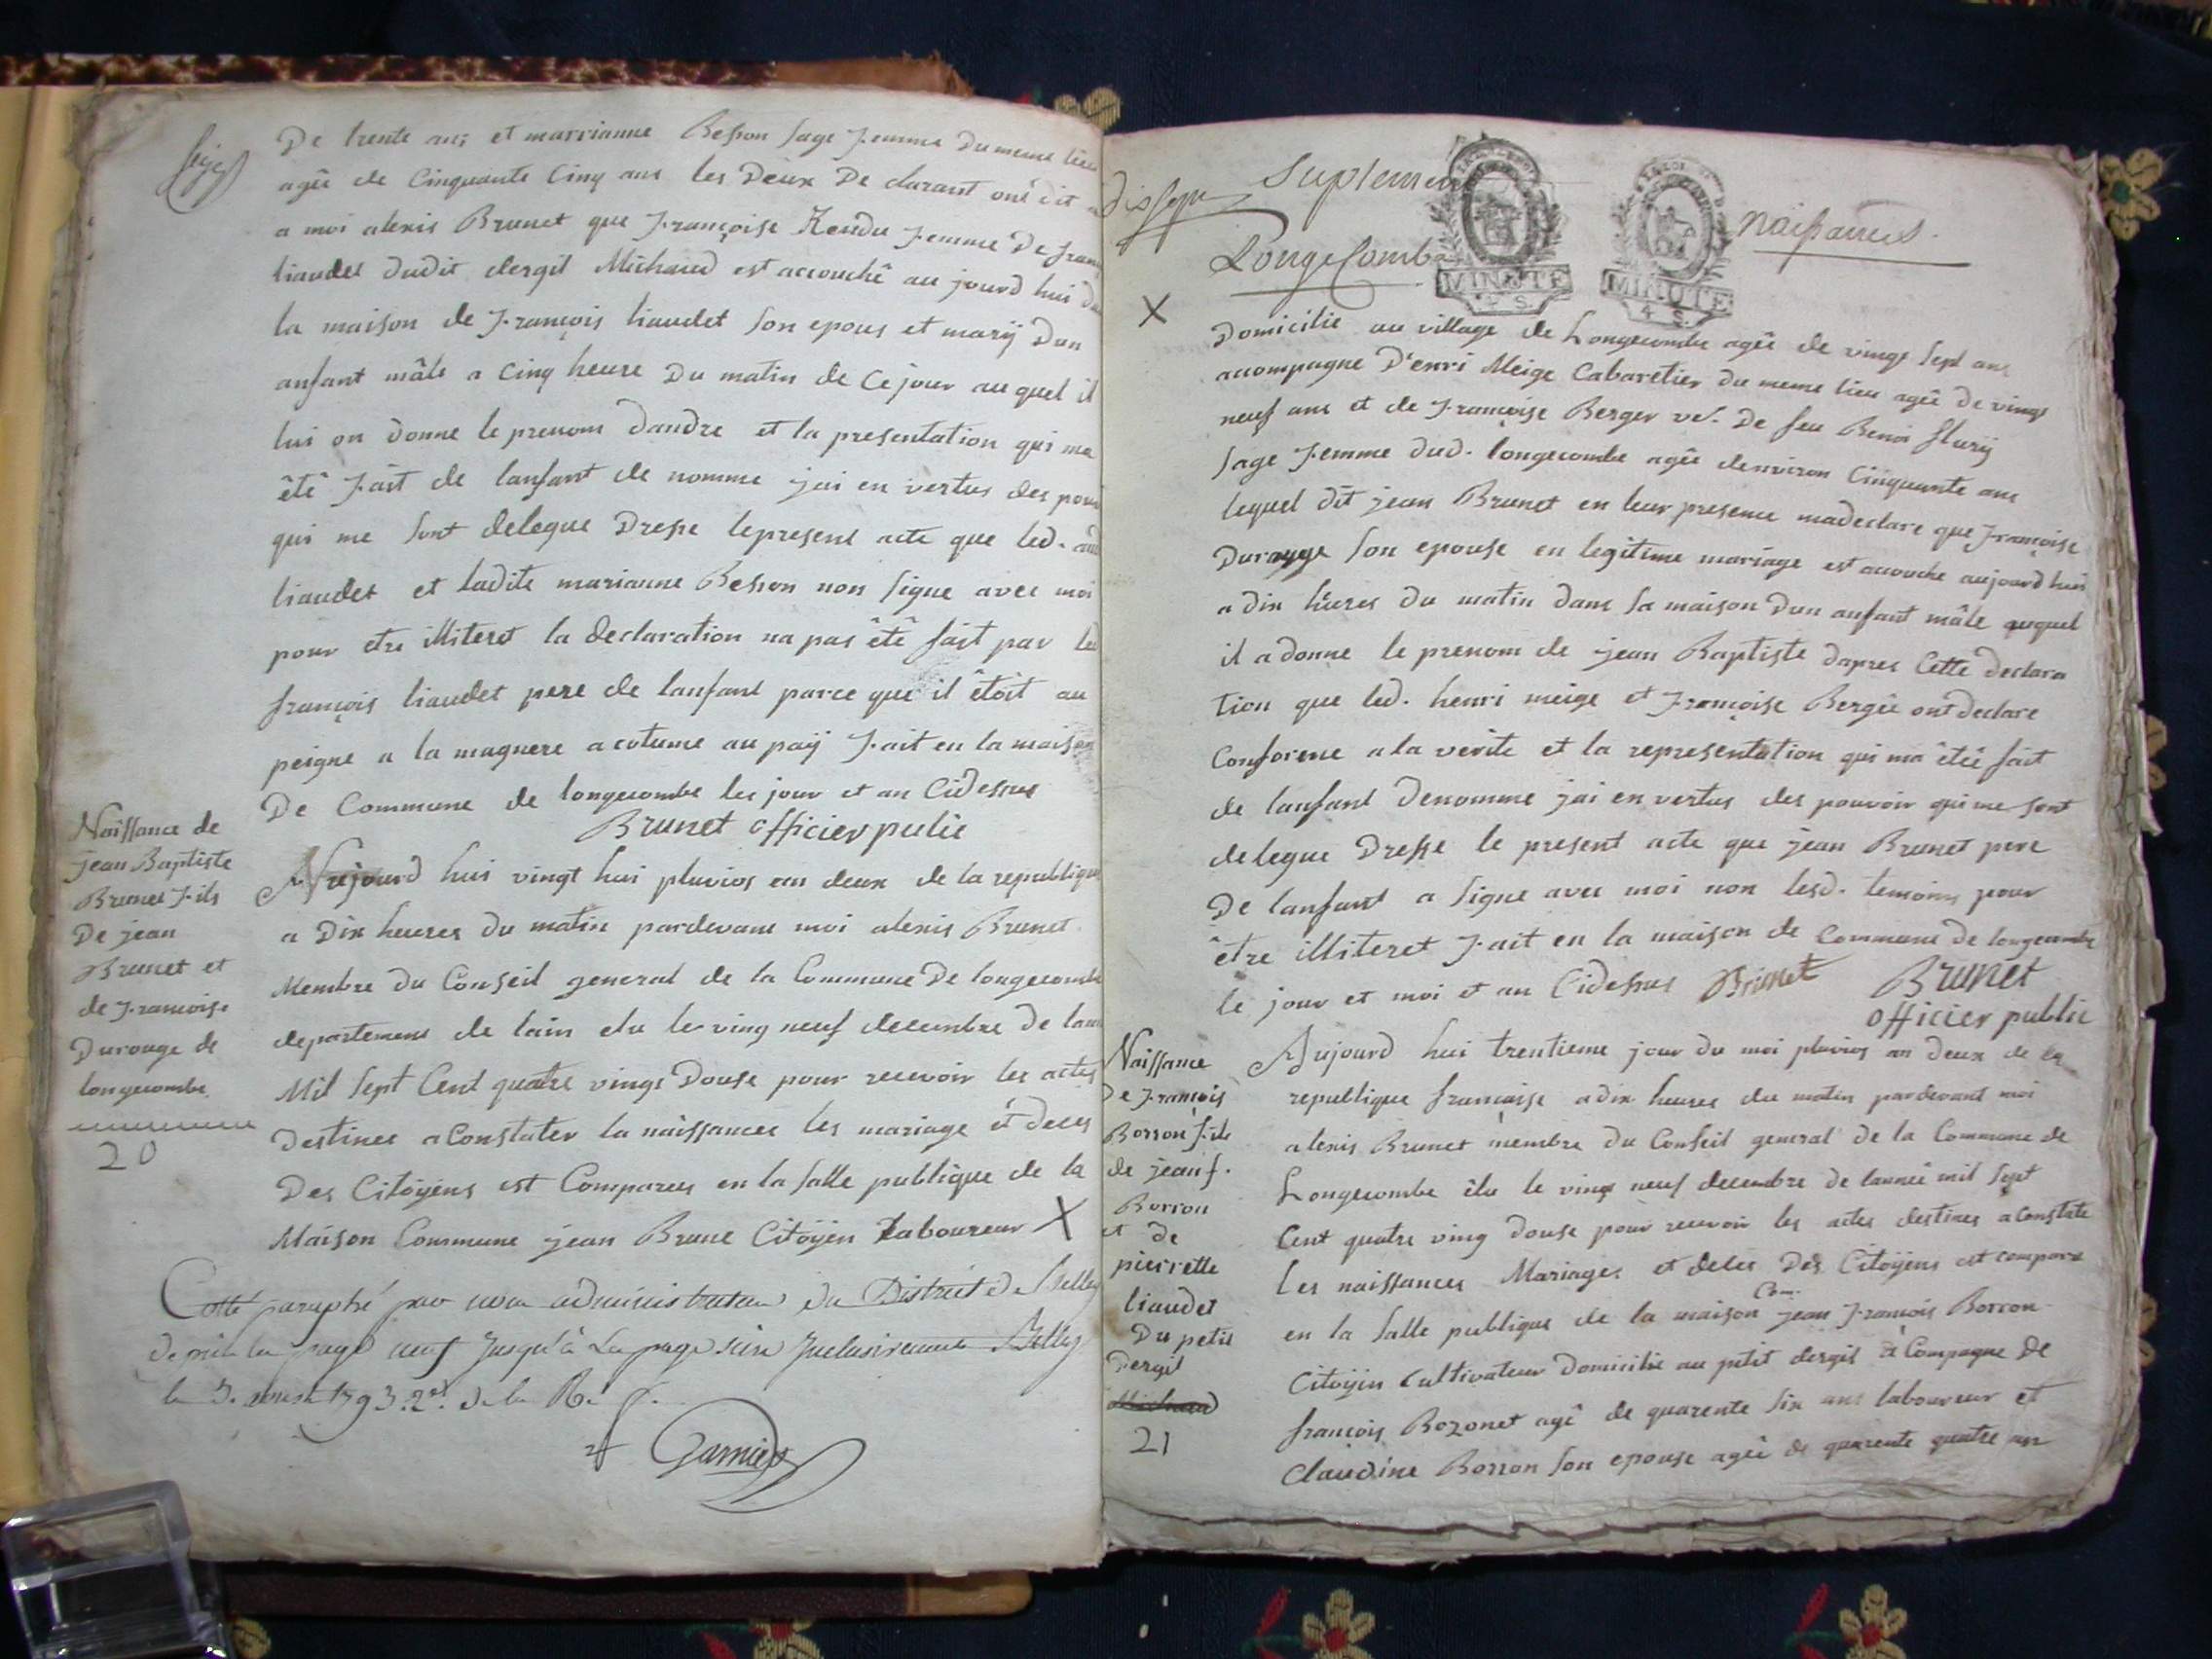 De trente ans et marrianne Besson sage femme du meme lieu
agée de Cinquante Cinq ans les Deux De clarant ont dit
a moi alexis Brunet que françoise Rendu femme De
liaudet dudit dergil Michaud est accouché au jourd hui
la maison de françois liaudet son epous et marÿ Dun
anfant mâle a cinq heure Du matin de ce jour au quel il
lui on donne le prenom dandre et la presentation qui ma
êtê fait de lanfant de nomme jai en vertus des
qui me sont delegue Dresse lepresent acte que led.
liaudet et ladite marianne Besson non signe avec moi
pour etre illiteret la declaration na pas êtê fait par led
françois liaudet pere de lanfant parce que il êtoit au
peigne a la magnere acotume au paÿ fait en la maison
De Commune de longecombe les jour et an Cidessus
Brunet officier pulic
Naissance de
jean Baptiste
Brunet fils
De jean
Brunet et
de françoise
Durouge de
longecombe
20
Aujourd hui vingt hui pluvios an deux de la republique
a Dix heures du matin pardevant moi alexis Brunet
Membre du Conseil general de la Commune De longecombe
departement de lain elu le ving neuf decembre De
Mil sept Cent quatre vings Douse pour recevoir les actes
Destines a Constater la naissances les mariage et deces
Des Citoÿens est Comparus en la salle publique de la
Maison Commune jean Brune Citoÿen Laboureur X
Cotté paraphé par nous administrateur du District de Belley
Depuis la page neuf jusqu'à la page seize Inclusivement Belley
Garnier
Suplement
naissances.
Longecombe
MINUTE
MINUTE
4 S.
X
Domicilie au village de Longecombe agée de vingt sept ans
accompagne D'enri Meige Cabaretier du meme lieu agée De vingt
neuf ans et de françoise Berger ve. De feu Benoi flurÿ
sage femme dud. longecombe agée denviron Cinquante ans
lequel dit jean Brunet en leur presence madeclare que françoise
Durouge son epouse en legitime mariage est accouche aujourd hui
a dix hures du matin dans sa maison Dun anfant mâle auquel
il a donne le prenom de jean Baptiste dapres Cette declara
tion que led. henri meige et françoise Bergée ont declare
Conforme a la verite et la representation qui ma êtée fait
de lanfant denomme jai en vertus des pouvoir qui me sont
delegue Dresse le present acte que jean Brunet pere
De lanfant a signe avec moi non lesd. temoins pour
être illiteret fait en la maison de Commune de longecombe
le jour et moi et an Cidessus Brunet Brunet
officier public
Naissance
De françois
Borron fils
de jean f.
Borron
et de
pierrette
liaudet
Du petit
Dergil
Michaud
21
Aujourd hui trentieme jour du moi pluvios an deux de la
republique francaise a dix heures du matin pardevant moi
alexis Brunet membre du Conseil general de la Commune de
Longecombe êlu le ving neuf decembre de lannée mil sept
Cent quatre ving douse pour recevoir les actes destines a constate
les naissances Mariages et deces Des Citoÿens est compare
en la salle publique de la maison Com. jean françois Borron
Citoyin Cultivateur domicilie au petit dergis a Compagne De
françois Bozonet agê de quarente six ans laboureur et
Claudine Borron son epouse agée de quarente quatre ans